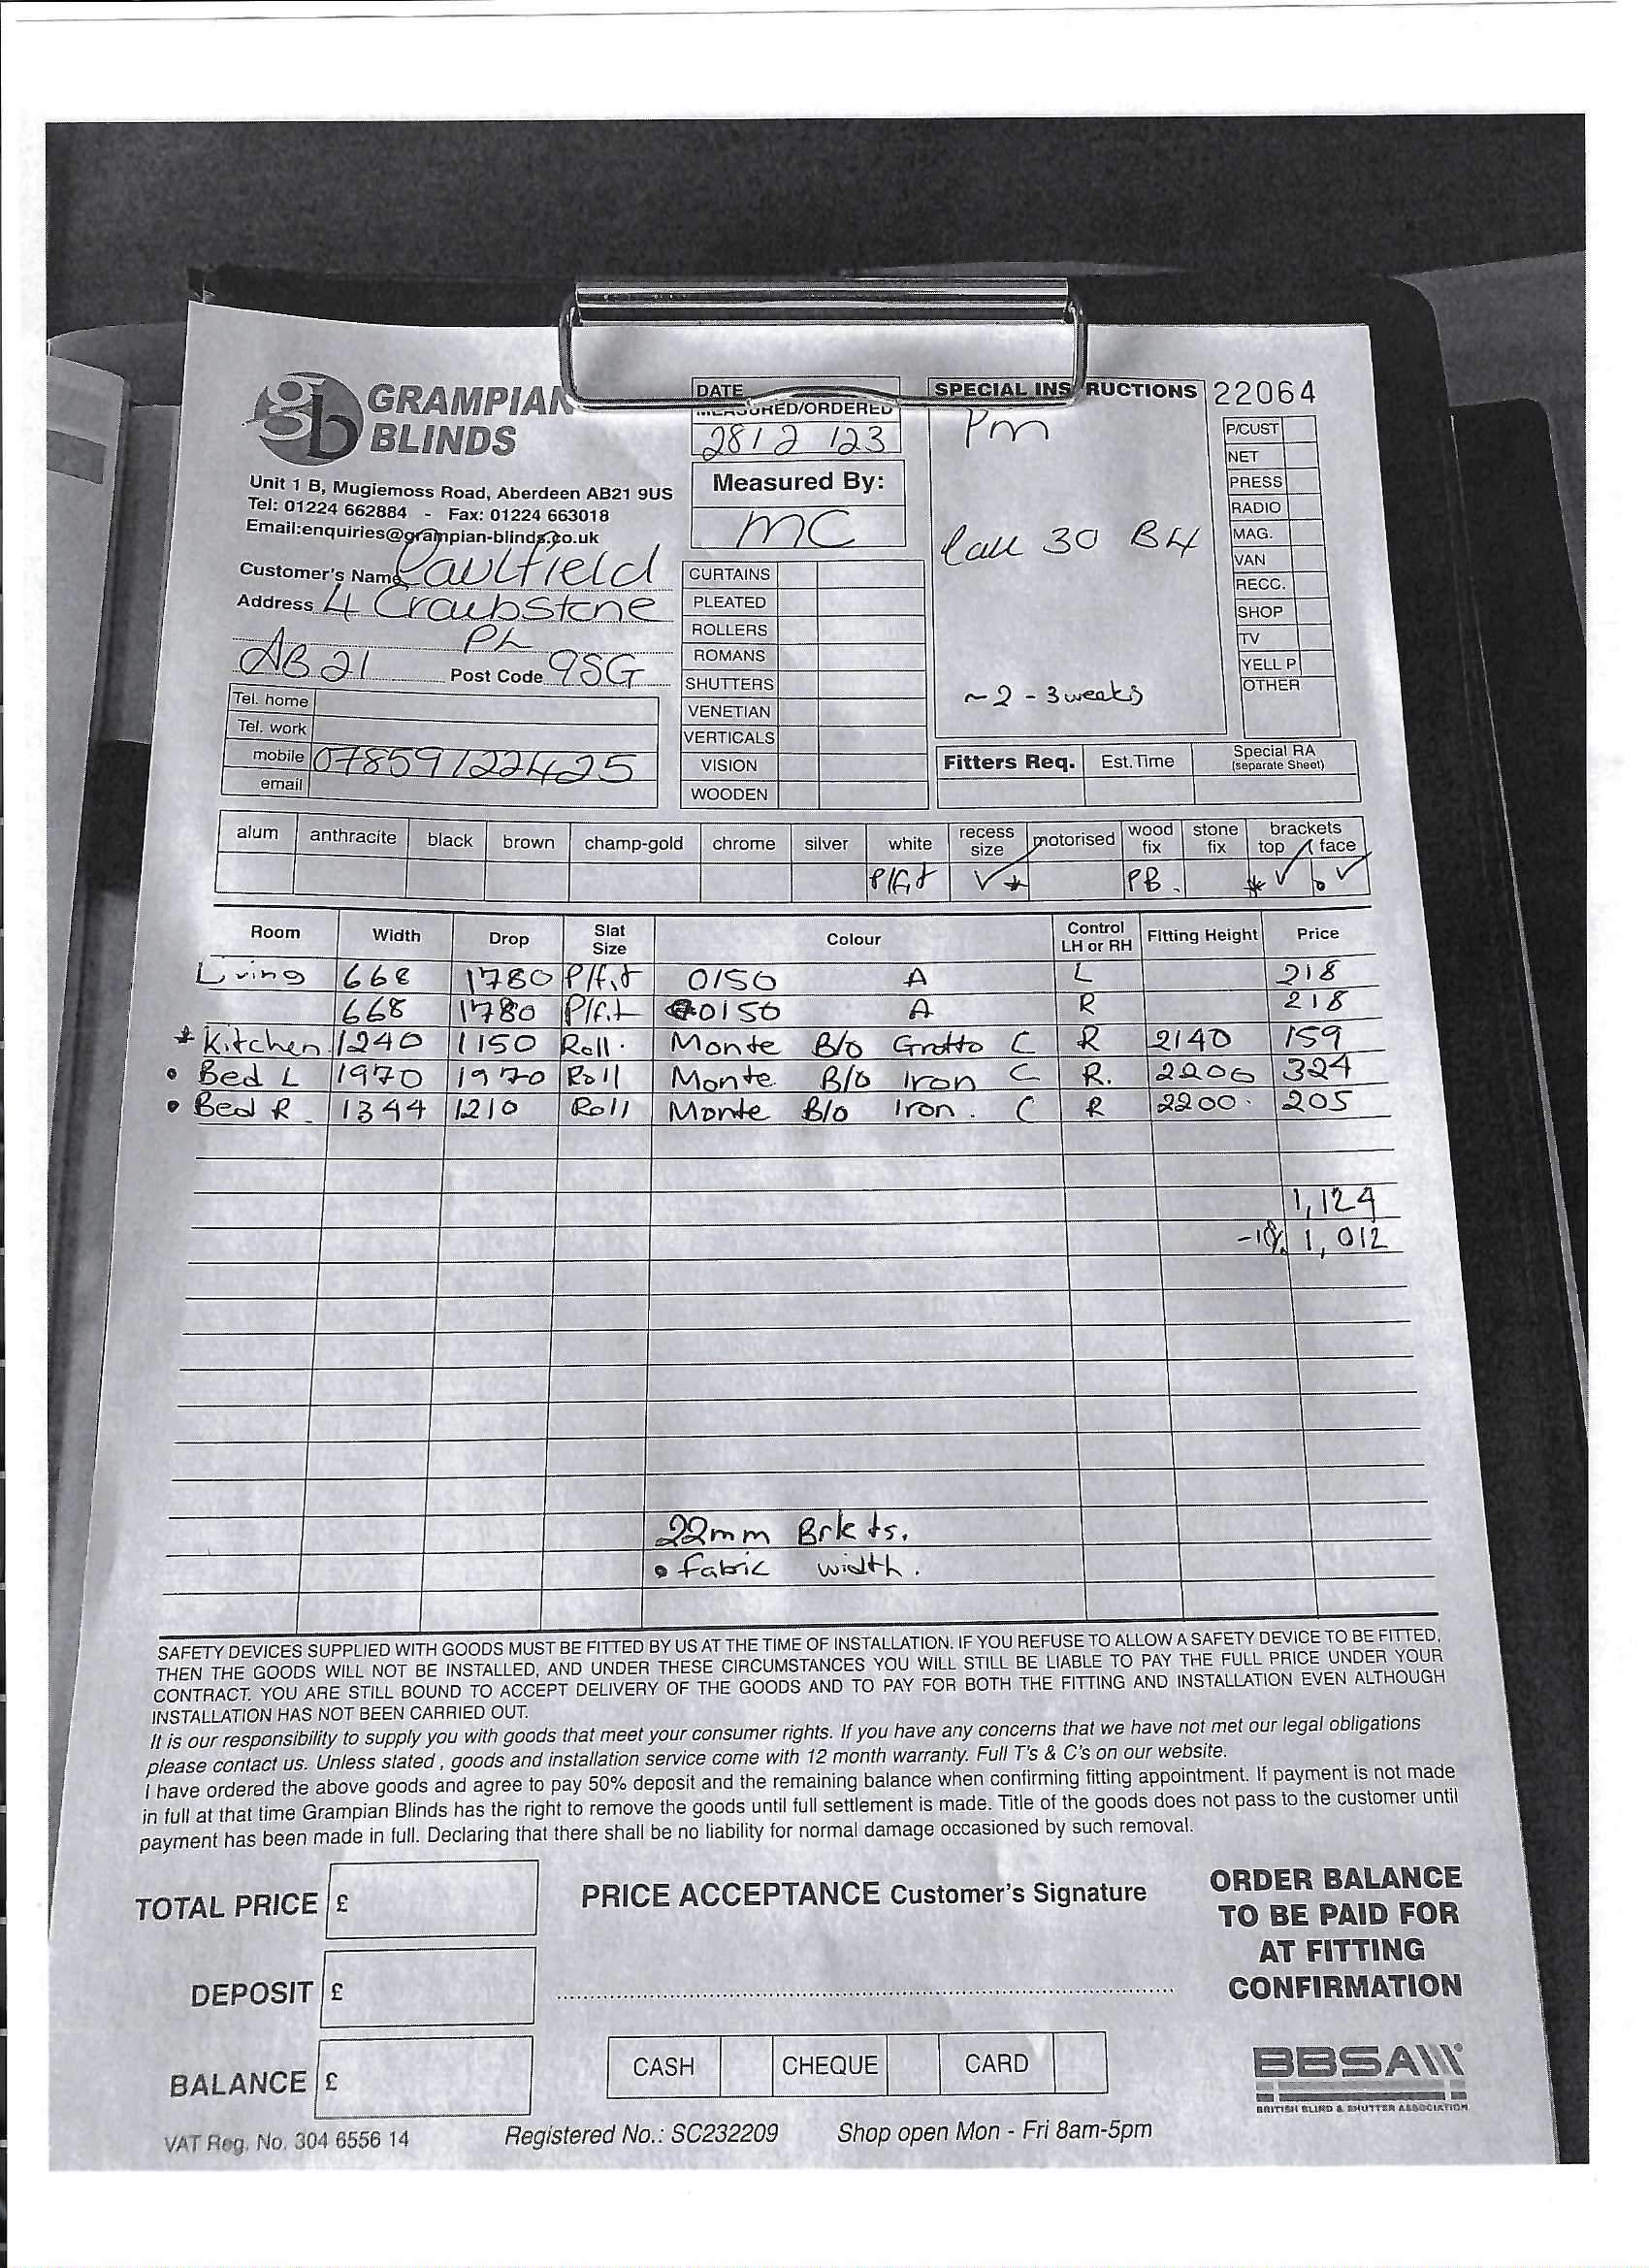 GRAMPIAN
BLINDS
Unit 1 B, Mugiemoss Road, Aberdeen AB21 9US
Tel: 01224 662884 - Fax: 01224 663018
Email:enquiries@grampian-blinds.co.uk
Customer's Name Caulfield
Address 4 Craibstone
PL
AB21 Post Code 9SG
Tel. home
Tel. work
mobile 07859122425
email
DATE
MEASURED/ORDERED
28/2/23
Measured By:
MC
CURTAINS
PLEATED
ROLLERS
ROMANS
SHUTTERS
VENETIAN
VERTICALS
VISION
WOODEN
SPECIAL INSTRUCTIONS 22064
Pm
Call 30 B4
~2-3weeks
P/CUST
NET
PRESS
RADIO
MAG.
VAN
RECC.
SHOP
TV
YELL P
OTHER
Fitters Req. Est.Time Special RA
(separate Sheet)
alum anthracite black brown champ-gold chrome silver white recess size motorised wood fix stone fix brackets top / face
P/fit ✓* PB. *✓ •✓
Room Width Drop Slat Size Colour Control LH or RH Fitting Height Price
Living 668 1780 P/fit 0150 A L 218
668 1780 P/fit 0150 A R 218
* Kitchen 1240 1150 Roll. Monte B/o Grotto C R 2140 159
• Bed L 1970 1970 Roll Monte B/o Iron C R. 2200 324
• Bed R 1344 1210 Roll Monte B/o Iron. C R 2200. 205
1,124
-10% 1,012
22mm Brkts.
• fabric width.
SAFETY DEVICES SUPPLIED WITH GOODS MUST BE FITTED BY US AT THE TIME OF INSTALLATION. IF YOU REFUSE TO ALLOW A SAFETY DEVICE TO BE FITTED,
THEN THE GOODS WILL NOT BE INSTALLED, AND UNDER THESE CIRCUMSTANCES YOU WILL STILL BE LIABLE TO PAY THE FULL PRICE UNDER YOUR
CONTRACT. YOU ARE STILL BOUND TO ACCEPT DELIVERY OF THE GOODS AND TO PAY FOR BOTH THE FITTING AND INSTALLATION EVEN ALTHOUGH
INSTALLATION HAS NOT BEEN CARRIED OUT.
It is our responsibility to supply you with goods that meet your consumer rights. If you have any concerns that we have not met our legal obligations
please contact us. Unless stated , goods and installation service come with 12 month warranty. Full T's & C's on our website.
I have ordered the above goods and agree to pay 50% deposit and the remaining balance when confirming fitting appointment. If payment is not made
in full at that time Grampian Blinds has the right to remove the goods until full settlement is made. Title of the goods does not pass to the customer until
payment has been made in full. Declaring that there shall be no liability for normal damage occasioned by such removal.
TOTAL PRICE £
DEPOSIT £
BALANCE £
PRICE ACCEPTANCE Customer's Signature
CASH CHEQUE CARD
ORDER BALANCE
TO BE PAID FOR
AT FITTING
CONFIRMATION
BBSA
BRITISH BLIND & SHUTTER ASSOCIATION
VAT Reg. No. 304 6556 14 Registered No.: SC232209 Shop open Mon - Fri 8am-5pm